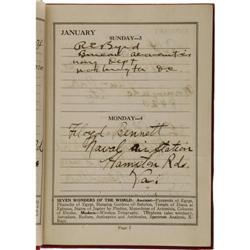 JANUARY
SUNDAY—3
R E Byrd
Bureau Aeronautics
Navy Dept
Washington D.C.
MONDAY—4
Floyd Bennett
Naval Air Station
Hampton Rds.
Va.
SEVEN WONDERS OF THE WORLD: Ancient—Pyramids of Egypt,
Pharos of Egypt, Hanging Gardens of Babylon, Temple of Diana at
Ephesus, Statue of Jupiter by Phidias, Mausoleum of Artemisia, Colossus
of Rhodes. Modern—Wireless Telegraphy, Telephone,
Radium, Antiseptics and Antitoxins, Spectrum Analysis, X-
Rays.
Page 7